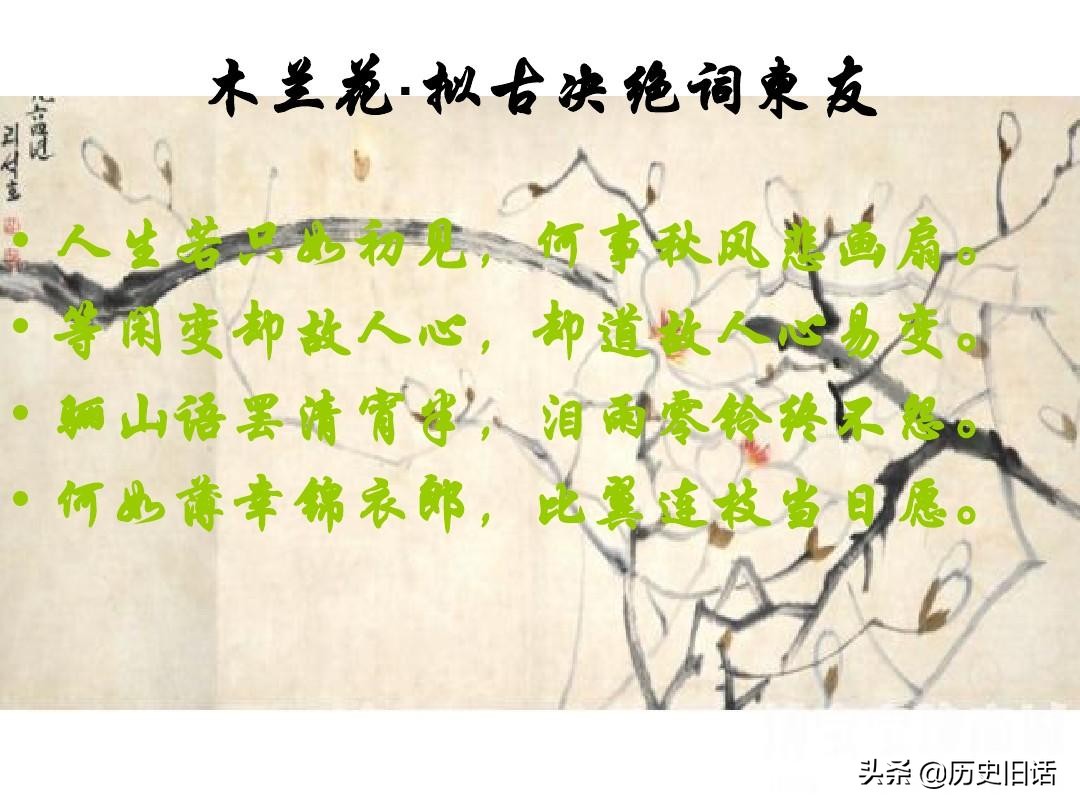 木兰花·拟古决绝词柬友
• 人生若只如初见，何事秋风悲画扇。
• 等闲变却故人心，却道故人心易变。
• 骊山语罢清宵半，泪雨零铃终不怨。
• 何如薄幸锦衣郎，比翼连枝当日愿。
头条 @历史旧话